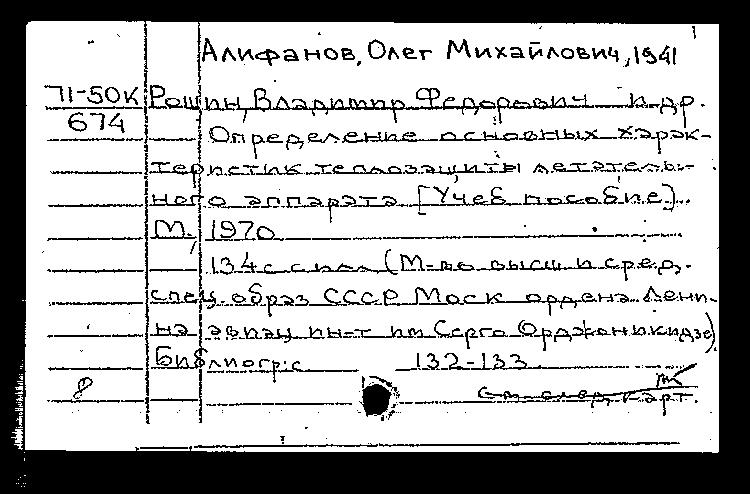 Алифанов, Олег Михайлович, 1941
71-50К Рощин, Владимир Федорович и др.
674
Определение основных харак-
теристик теплозащиты летатель-
ного аппарата [Учеб пособие].
М., 1970
134 с с илл (М-во высш и сред.
спец. образ СССР Моск ордена Лени-
на авиац ин-т им Серго Орджоникидзе)
Библиогр: с 132-133
8
См. след. карт.